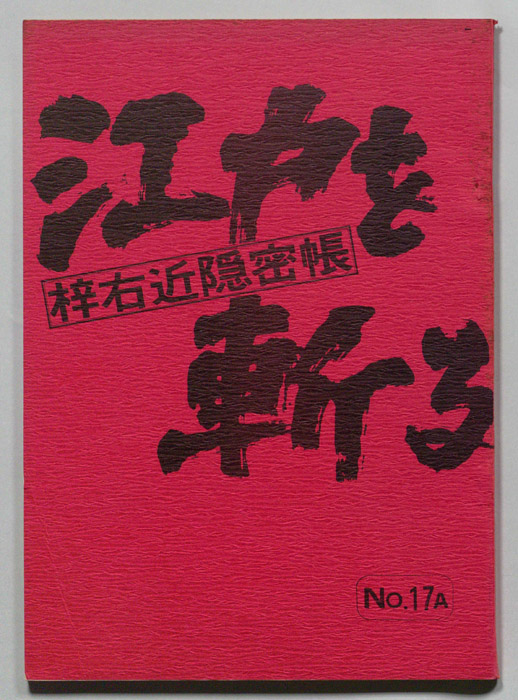 江戸を
梓右近隠密帳
斬る
No.17A